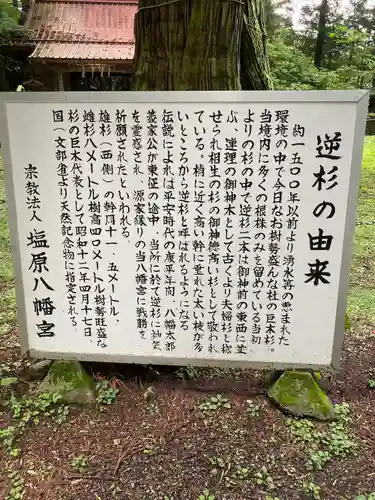 逆杉の由来
約一五〇〇年以前より湧水再の恵まれた
環境の中で今日なお樹勢盛んな杜の巨木杉。
当境内に多くの根株のみを留めている当初
よりの杉の中で逆杉二本は御神前の東西に並
ぶ、連理の御神木として古くより夫婦杉と称
せられ相生の杉の御神徳高い杉として敬われ
ている。梢に近く高い幹に垂れた太い枝が多
いところから逆杉と呼ばれるようになる
伝説によれば平安時代の康平年間、八幡太郎
義家公が東征の途中、当所に於て逆杉に神気
を霊感され、源家縁りの当八幡宮に戦勝を
祈願されたといわれる。
雄杉(西側)の幹周十一.五メートル、
雌杉八メートル樹高四〇メートル樹勢旺盛な
杉の巨木代表として昭和十二年四月十七日、
国(文部省)より天然記念物に指定される。
宗教法人 塩原八幡宮